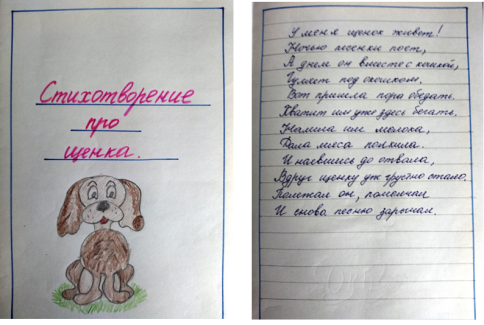 Стихотворение
про
щенка.
У меня щенок живет!
Ночью песенки поет,
А днем он вместе с кошкой,
Гуляет под окошком.
Вот пришла пора обедать.
Хватит им уже здесь бегать.
Налила им молока,
Дала мяса полкила.
И наевшись до отвала,
Вдруг щенку уж грустно стало.
Полежал он, помолчал
И снова песню зарычал.